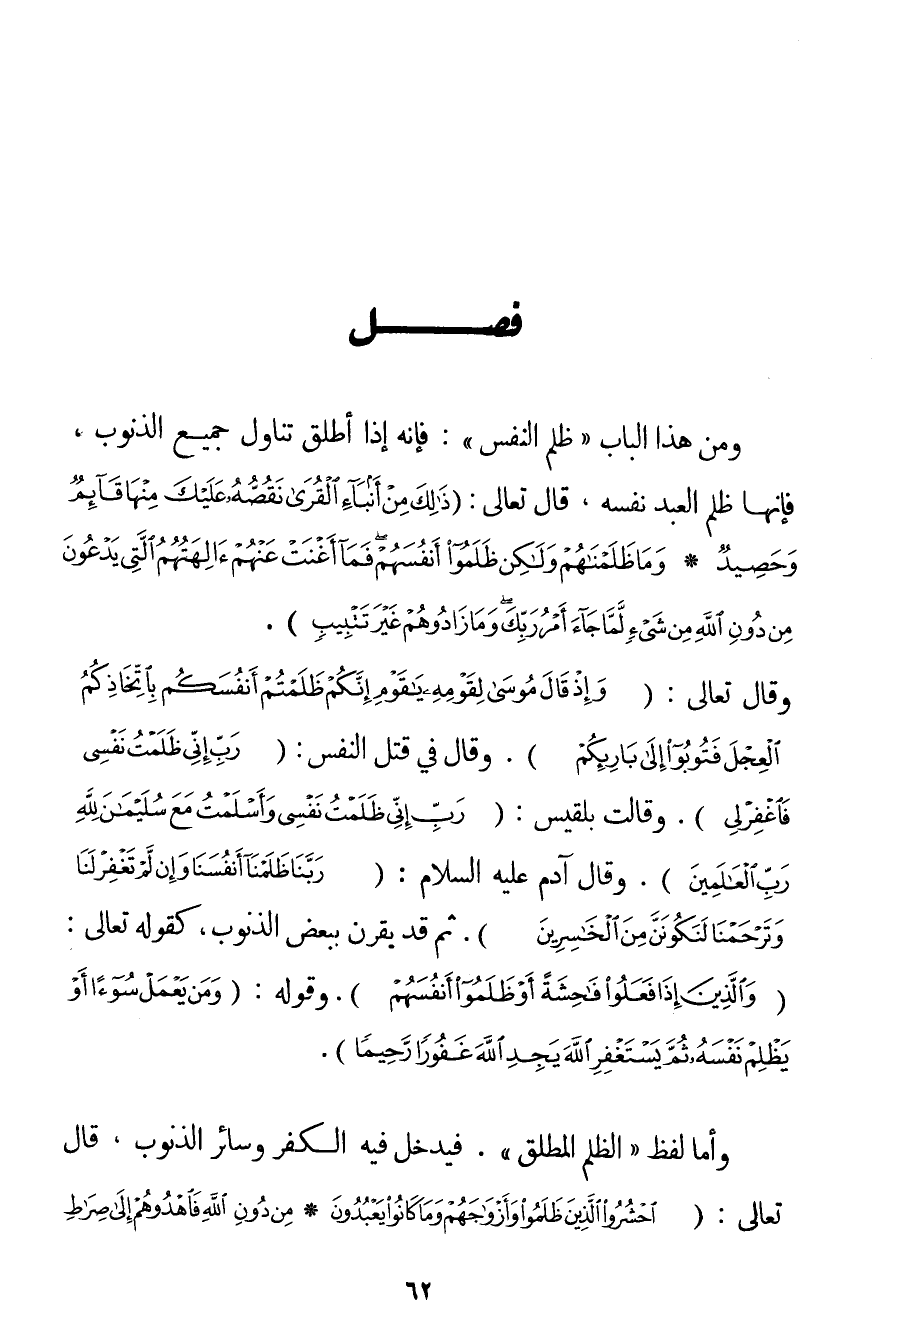 فصل
ومن هذا الباب « ظلم النفس » : فإنه إذا أطلق تناول جميع الذنوب ،
فإنها ظلم العبد نفسه ، قال تعالى : (ذَٰلِكَ مِنْ أَنۢبَآءِ ٱلْقُرَىٰ نَقُصُّهُۥ عَلَيْكَ مِنْهَا قَآئِمٌ
وَحَصِيدٌ * وَمَا ظَلَمْنَٰهُمْ وَلَٰكِن ظَلَمُوٓا۟ أَنفُسَهُمْ ۖ فَمَآ أَغْنَتْ عَنْهُمْ ءَالِهَتُهُمُ ٱلَّتِى يَدْعُونَ
مِن دُونِ ٱللَّهِ مِن شَىْءٍ لَّمَّا جَآءَ أَمْرُ رَبِّكَ ۖ وَمَا زَادُوهُمْ غَيْرَ تَتْبِيبٍ ) .
وقال تعالى : ( وَإِذْ قَالَ مُوسَىٰ لِقَوْمِهِۦ يَٰقَوْمِ إِنَّكُمْ ظَلَمْتُمْ أَنفُسَكُم بِٱتِّخَاذِكُمُ
ٱلْعِجْلَ فَتُوبُوٓا۟ إِلَىٰ بَارِئِكُمْ ) . وقال في قتل النفس : ( رَبِّ إِنِّى ظَلَمْتُ نَفْسِى
فَٱغْفِرْ لِى ) . وقالت بلقيس : ( رَبِّ إِنِّى ظَلَمْتُ نَفْسِى وَأَسْلَمْتُ مَعَ سُلَيْمَٰنَ لِلَّهِ
رَبِّ ٱلْعَٰلَمِينَ ) . وقال آدم عليه السلام : ( رَبَّنَا ظَلَمْنَآ أَنفُسَنَا وَإِن لَّمْ تَغْفِرْ لَنَا
وَتَرْحَمْنَا لَنَكُونَنَّ مِنَ ٱلْخَٰسِرِينَ ) . ثم قد يقرن ببعض الذنوب ، كقوله تعالى :
( وَٱلَّذِينَ إِذَا فَعَلُوا۟ فَٰحِشَةً أَوْ ظَلَمُوٓا۟ أَنفُسَهُمْ ) . وقوله : ( وَمَن يَعْمَلْ سُوٓءًا أَوْ
يَظْلِمْ نَفْسَهُۥ ثُمَّ يَسْتَغْفِرِ ٱللَّهَ يَجِدِ ٱللَّهَ غَفُورًا رَّحِيمًا ) .
وأما لفظ « الظلم المطلق » . فيدخل فيه الكفر وسائر الذنوب ، قال
تعالى : ( ٱحْشُرُوا۟ ٱلَّذِينَ ظَلَمُوا۟ وَأَزْوَٰجَهُمْ وَمَا كَانُوا۟ يَعْبُدُونَ * مِن دُونِ ٱللَّهِ فَٱهْدُوهُمْ إِلَىٰ صِرَٰطِ
٦٢